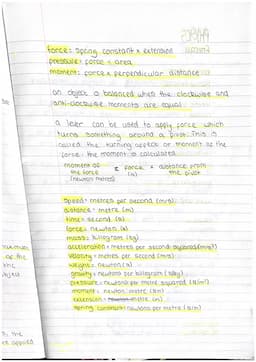 force = spring constant x extension
pressure = force ÷ area
moment = force x perpendicular distance
an object is balanced when the clockwise and
anti-clockwise moments are equal
a lever can be used to apply force which
turns something around a pivot. This is
called the turning effect or moment of the
force. the moment is calculated
moment of the force (newton metres) = force (N) x distance from the pivot
Speed = metres per second (m/s)
distance = metre (m)
time = second (s)
force = newton (N)
mass = kilogram (kg)
acceleration = metres per second squared (m/s²)
velocity = metres per second (m/s)
weight = newton (N)
gravity = newtons per kilogram (N/kg)
pressure = newtons per metre squared (N/m²)
moment = newton metre (Nm)
extension = metre (m)
spring constant = newtons per metre (N/m)